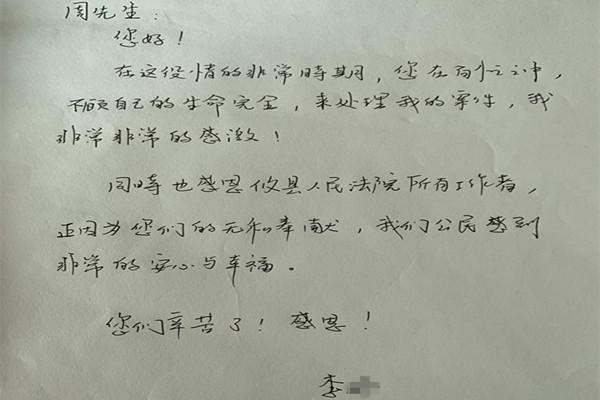 周先生:
您好!
在这役情的非常時期,您在百忙之中,
不顾自己的生命完全,来处理我的案件,我
非常非常的感激!
同時也感恩攸县人民法院所有工作者,
正因为您们的无私奉献,我们公民感到
非常的安心与幸福。
您们辛苦了!感恩!
李